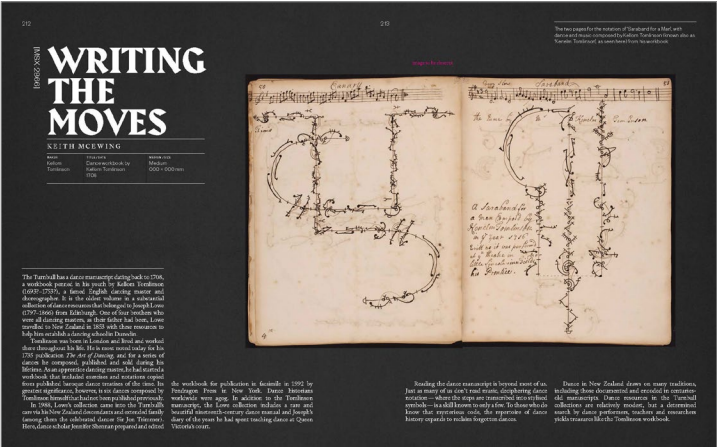 212
213
The two pages for the notation of 'Saraband for a Man', with
dance and music composed by Kellom Tomlinson (known also as
'Kenelm Tomlinson', as seen here) from his workbook.
(MSX-2966)
WRITING
THE
MOVES
KEITH MCEWING
Kellom
Tomlinson
Dance workbook by
Kellom Tomlinson
1708
Medium
000 × 000mm
The Turnbull has a dance manuscript dating back to 1708,
a workbook penned in his youth by Kellom Tomlinson
(1693?–1753?), a famed English dancing master and
choreographer. It is the oldest volume in a substantial
collection of dance resources that belonged to Joseph Lowe
(1797–1866) from Edinburgh. One of four brothers who
were all dancing masters, as their father had been, Lowe
travelled to New Zealand in 1853 with these resources to
help him establish a dancing school in Dunedin.
Tomlinson was born in London and lived and worked
there throughout his life. He is most noted today for his
1735 publication The Art of Dancing, and for a series of
dances he composed, published and sold during his
lifetime. As an apprentice dancing master, he had started a
workbook that included exercises and notations copied
from published baroque dance treatises of the time. Its
greatest significance, however, is six dances composed by
Tomlinson himself that had not been published previously.
In 1988, Lowe's collection came into the Turnbull's
care via his New Zealand descendants and extended family
(among them the celebrated dancer Sir Jon Trimmer).
Here, dance scholar Jennifer Shennan prepared and edited
the workbook for publication in facsimile in 1992 by
Pendragon Press in New York. Dance historians
worldwide were agog. In addition to the Tomlinson
manuscript, the Lowe collection includes a rare and
beautiful nineteenth-century dance manual and Joseph's
diary of the year he had spent teaching dance at Queen
Victoria's court.
Reading the dance manuscript is beyond most of us.
Just as many of us don't read music, deciphering dance
notation — where the steps are transcribed into stylised
symbols — is a skill known to only a few. To those who do
know that mysterious code, the repertoire of dance
history expands to reclaim forgotten dances.
Dance in New Zealand draws on many traditions,
including those documented and encoded in centuries-
old manuscripts. Dance resources in the Turnbull
collections are relatively modest, but a determined
search by dance performers, teachers and researchers
yields treasures like the Tomlinson workbook.
Saraband
A Saraband for
a Man Compos'd by